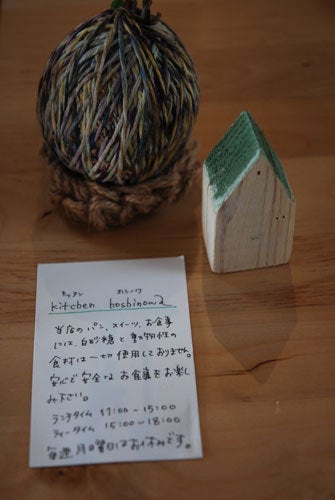 キッチン ホシノワ
kitchen hoshinowa
当店のパン、スイーツ、お食事
には、白砂糖と動物性の
食材は一切使用しておりません。
安心で安全なお食事をお楽し
み下さい。
ランチタイム 11:00〜15:00
ティータイム 15:00〜18:00
毎週月曜日はお休みです。